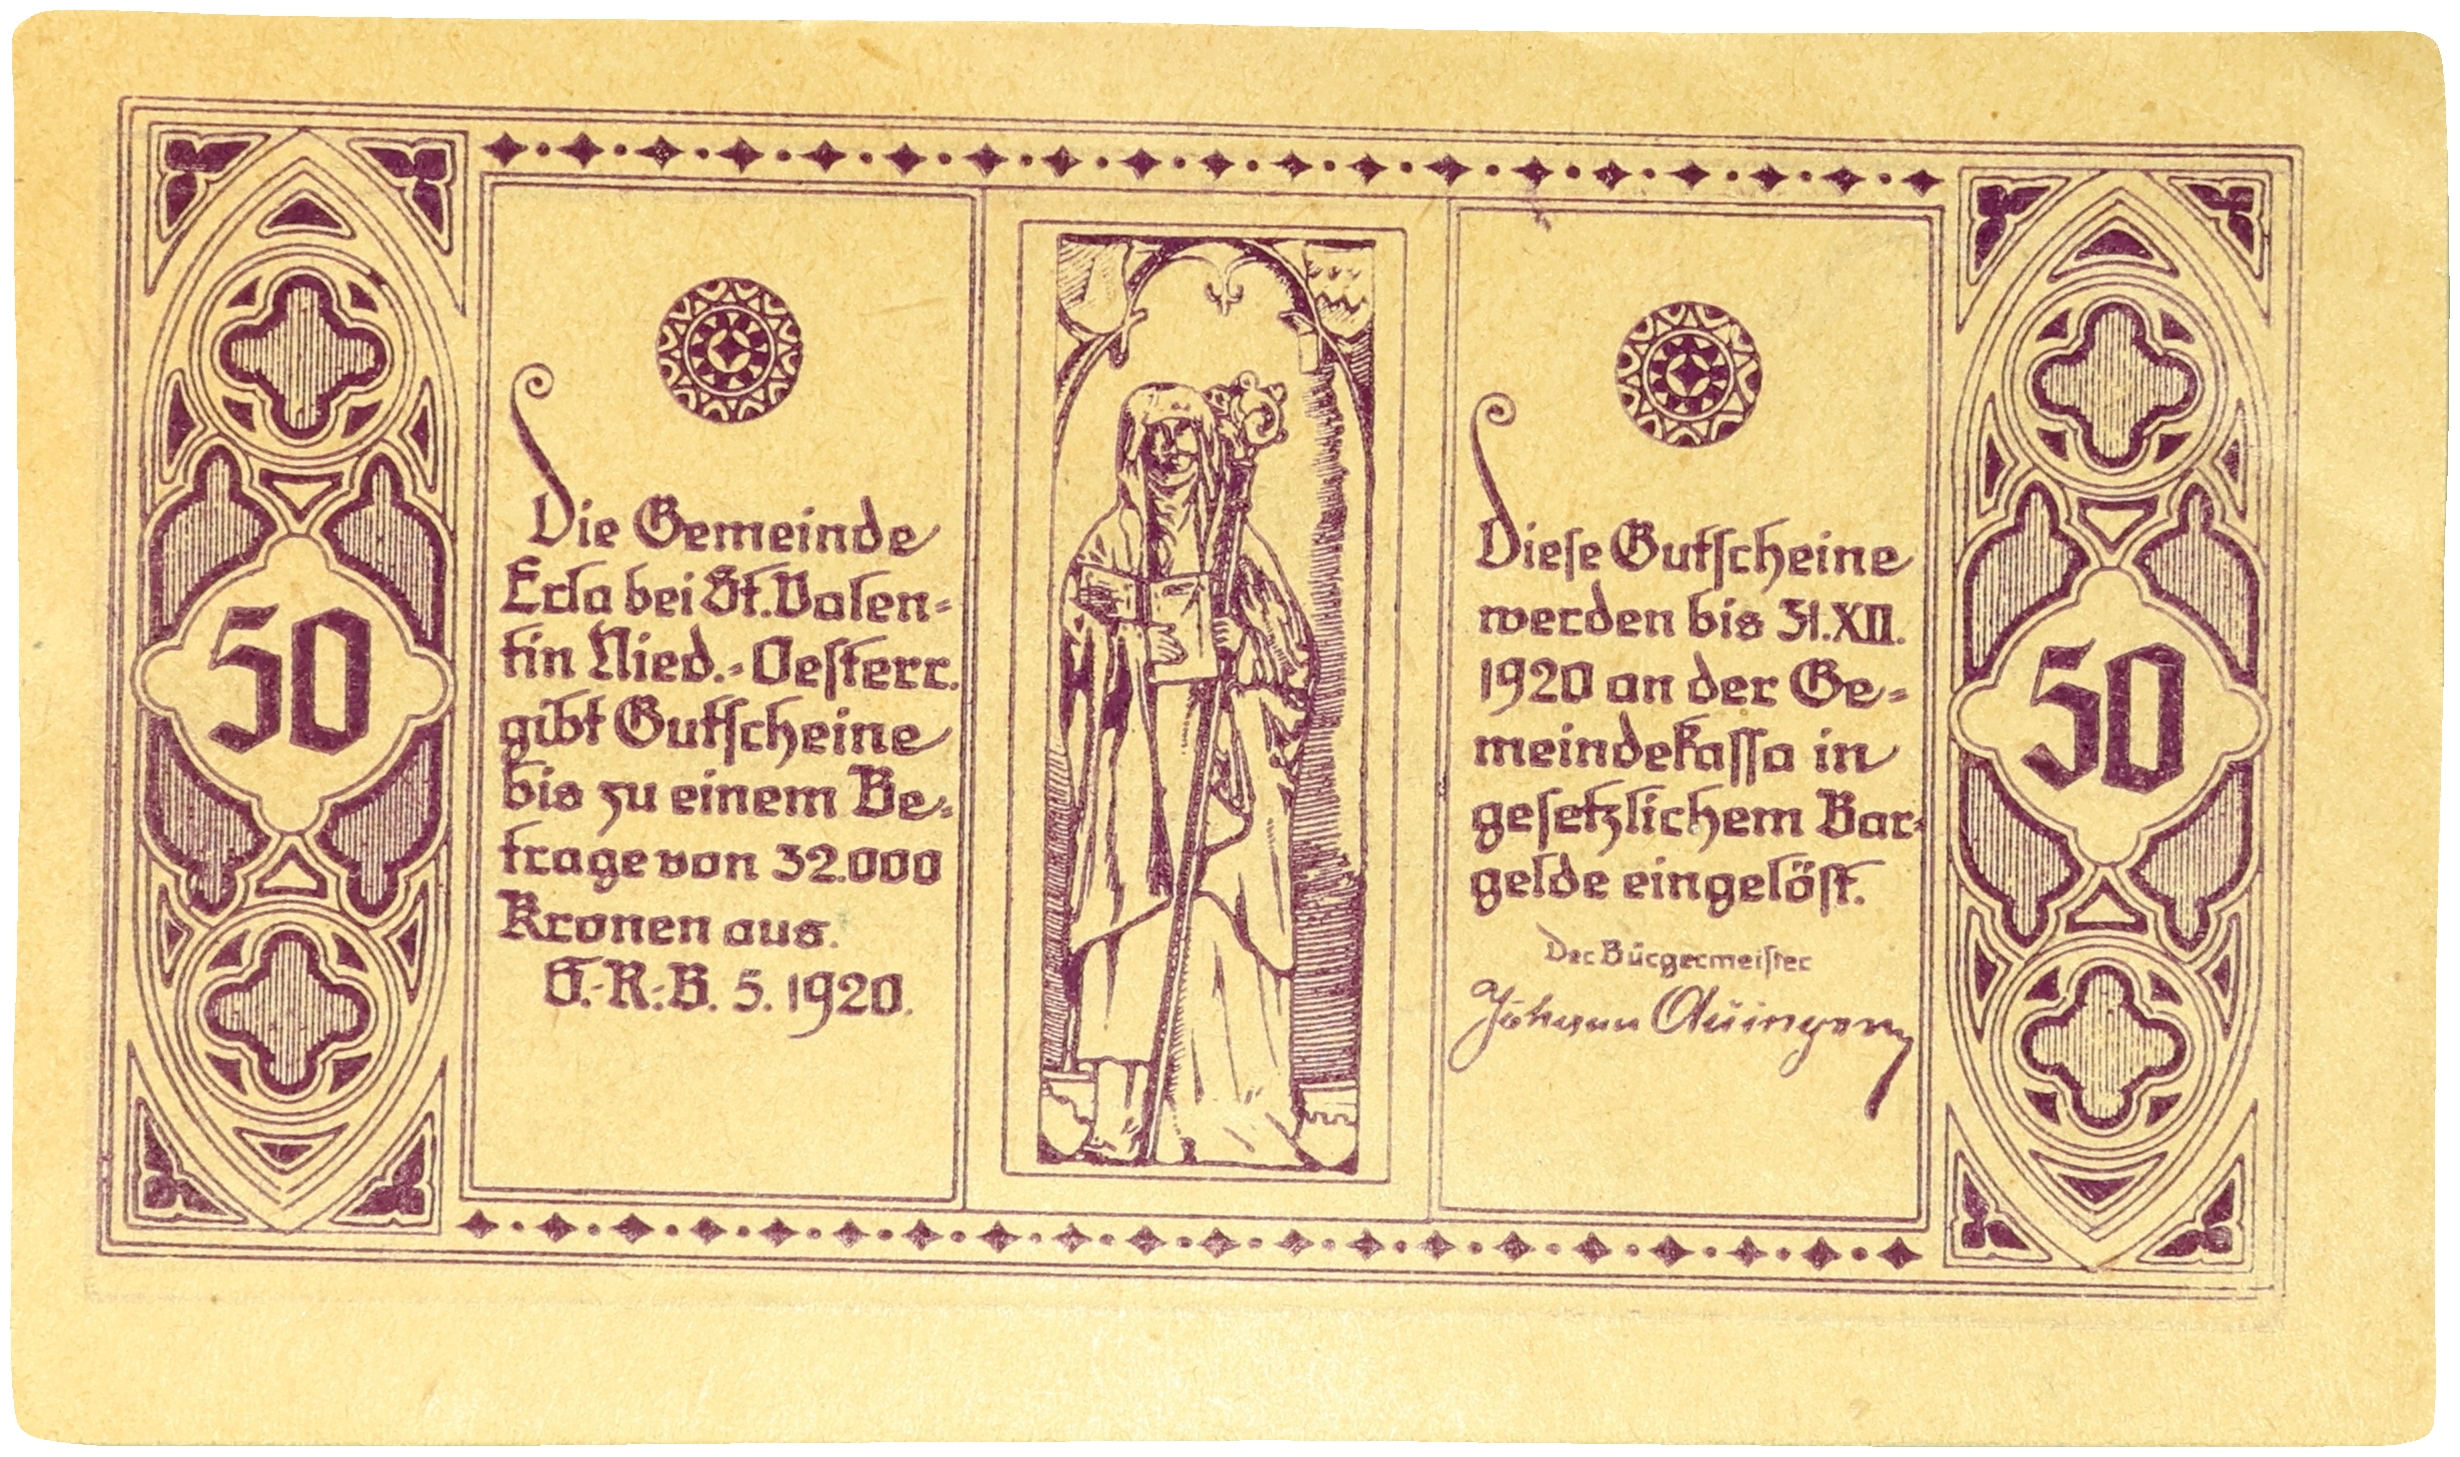 50
Die Gemeinde
Erla bei St. Valen=
tin Nied.=Oesterr.
gibt Gutscheine
bis zu einem Be=
trage von 32.000
Kronen aus.
G.-R.-B. 5. 1920.
Diese Gutscheine
werden bis 31.XII.
1920 an der Ge=
meindekassa in
gesetzlichem Bar=
gelde eingelöst.
Der Bürgermeister
Johann
50